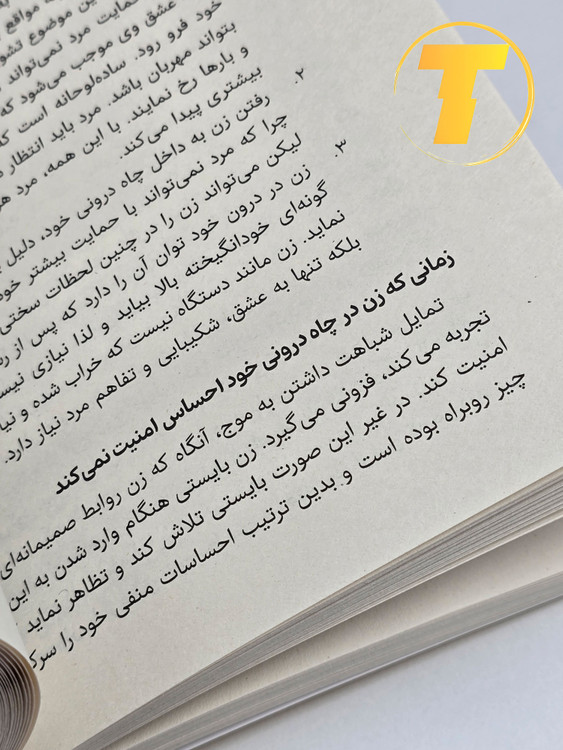 مواقع
حمایت مرد نمی‌تواند
عشق وی موجب می‌شود که
خود فرو رود. ساده‌لوحانه است که
بتواند مهربان باشد. مرد باید انتظار
و بارها رخ نمایند. با این همه، مرد
بیشتری پیدا می‌کند.
۲. رفتن زن به داخل چاه درونی خود، دلیل
چرا که مرد نمی‌تواند با حمایت بیشتر خود
لیکن می‌تواند زن را در چنین لحظات سختی
۳. زن در درون خود توان آن را دارد که پس از
گونه‌ای خودانگیخته بالا بیاید و لذا نیازی
نماید. زن مانند دستگاه نیست که خراب شده و
بلکه تنها به عشق، شکیبایی و تفاهم مرد نیاز دارد.
زمانی که زن در چاه درونی خود احساس امنیت نمی‌کند
تمایل شباهت داشتن به موج، آنگاه که زن روابط صمیمانه‌ای
تجربه می‌کند، فزونی می‌گیرد. زن بایستی هنگام وارد شدن به این
امنیت کند. در غیر این صورت بایستی تلاش کند و تظاهر نماید
چیز روبراه بوده است و بدین ترتیب احساسات منفی خود را
T